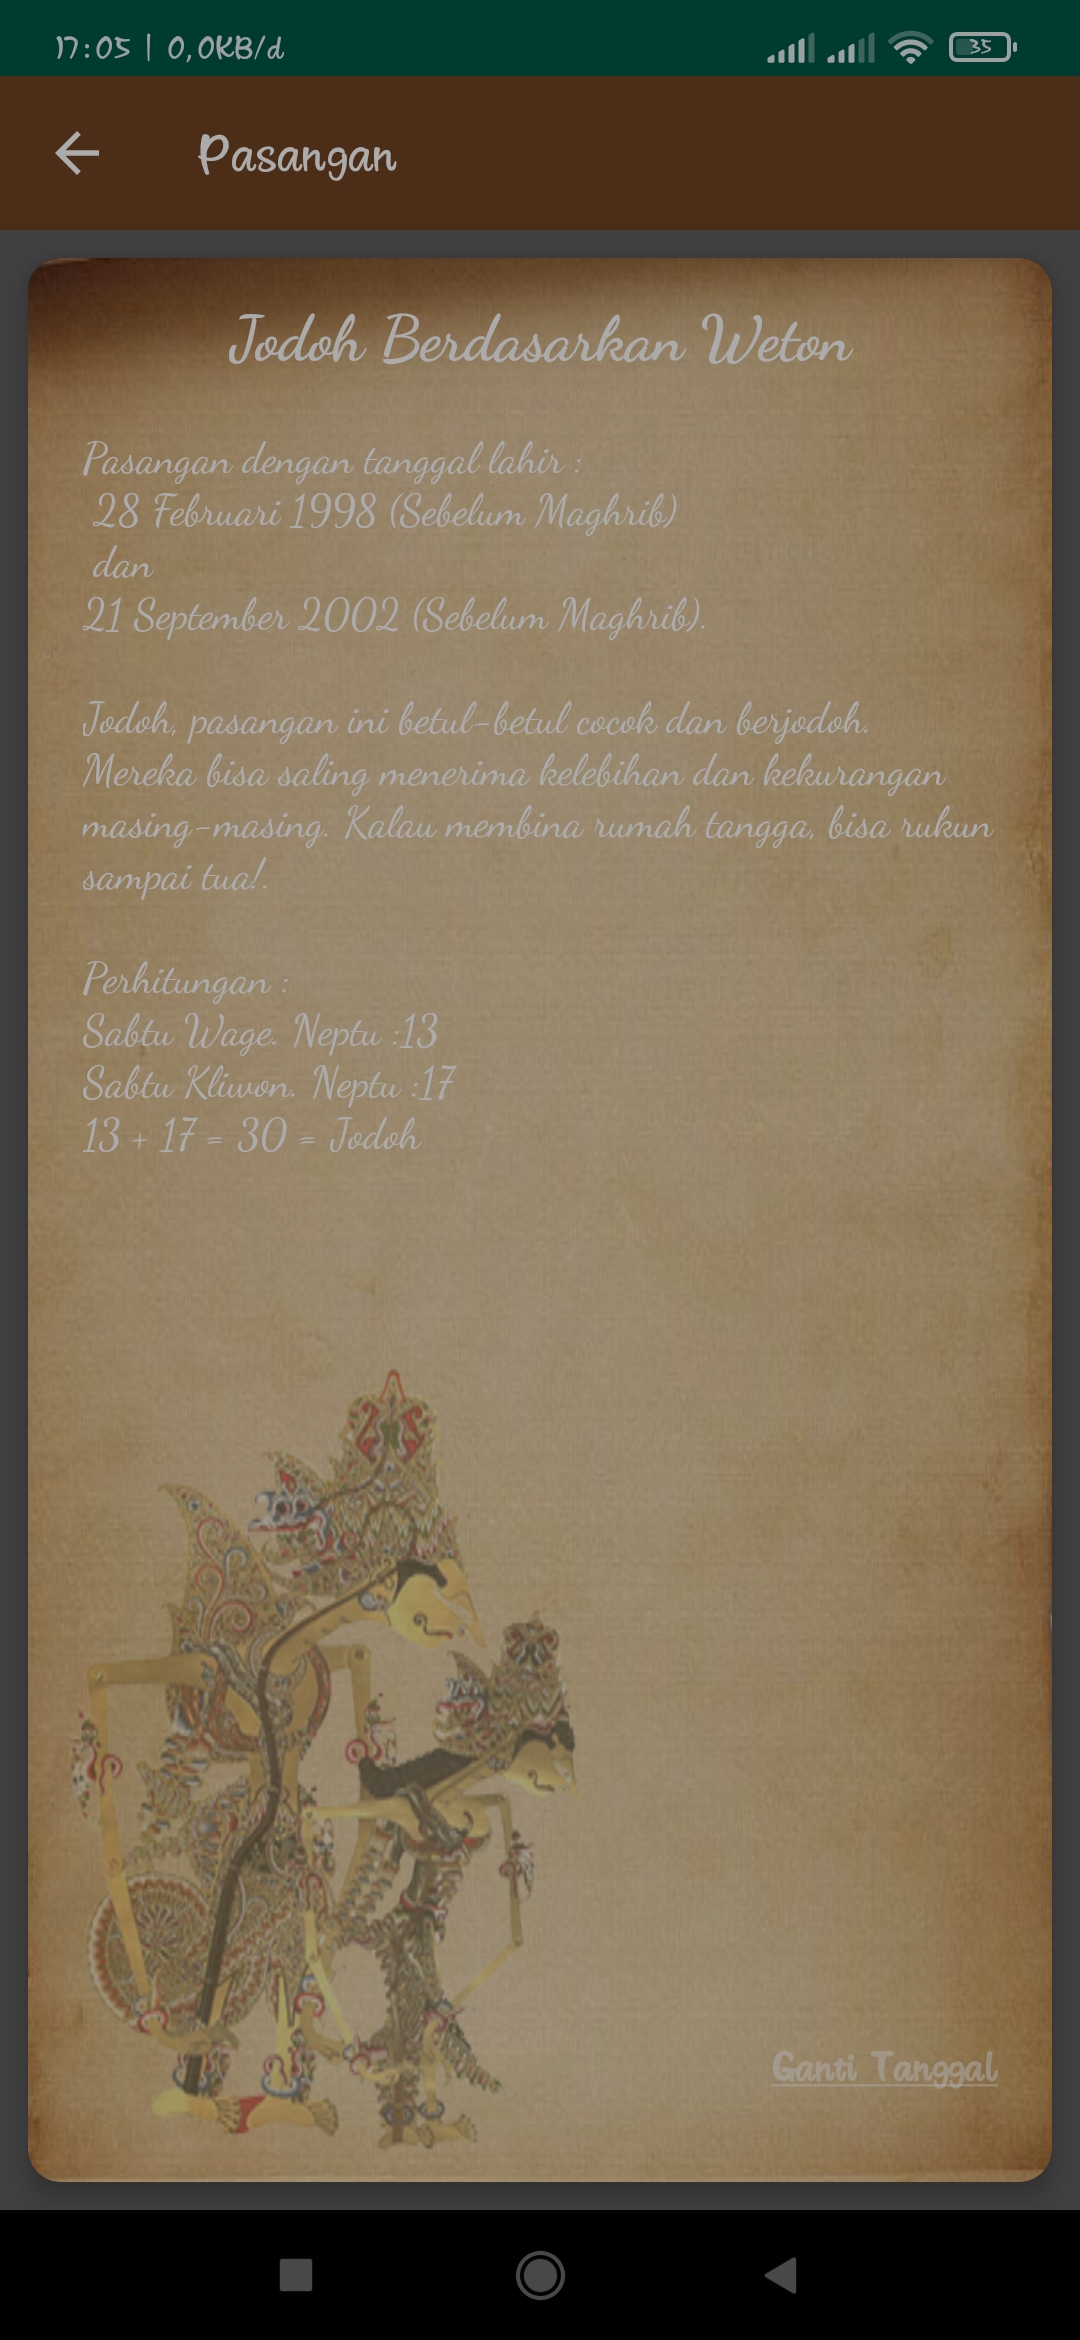 17:05 | 0,0KB/d
35
Pasangan
Jodoh Berdasarkan Weton
Pasangan dengan tanggal lahir :
28 Februari 1998 (Sebelum Maghrib)
dan
21 September 2002 (Sebelum Maghrib).
Jodoh, pasangan ini betul-betul cocok dan berjodoh.
Mereka bisa saling menerima kelebihan dan kekurangan
masing-masing. Kalau membina rumah tangga, bisa rukun
sampai tua!.
Perhitungan :
Sabtu Wage. Neptu :13
Sabtu Kliwon. Neptu :17
13 + 17 = 30 = Jodoh
Ganti Tanggal